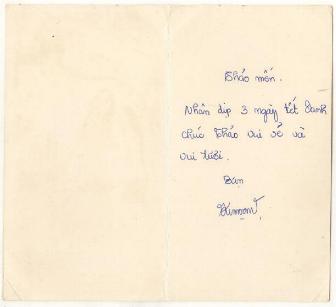 Thảo mến.
Nhân dịp 3 ngày tết Oanh
chúc Thảo vui vẻ và
vui tươi.
Bạn